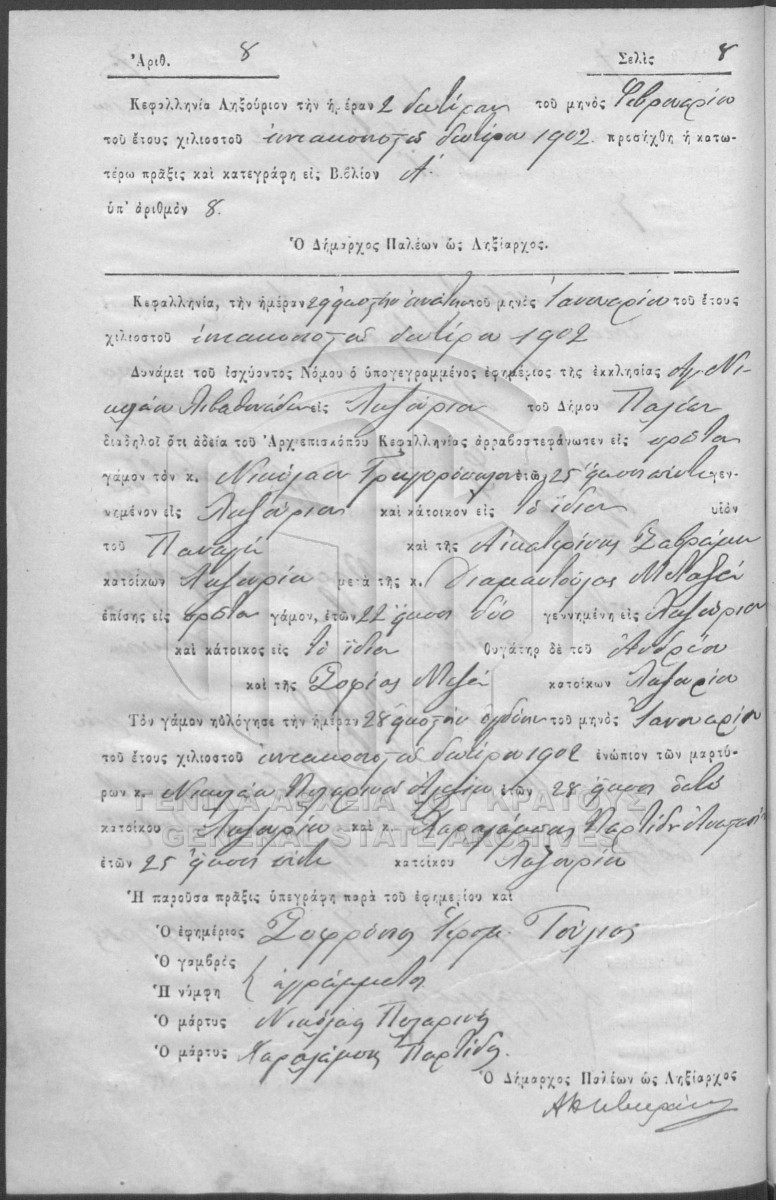 Ἀριθ. 8 Σελὶς 8
Κεφαλληνία Ληξούριον τὴν ἡμέραν 2 δευτέραν τοῦ μηνὸς Φεβρουαρίου
τοῦ ἔτους χιλιοστοῦ ἐννεακοσιοστοῦ δευτέρου 1902 προσήχθη ἡ κατω-
τέρω πρᾶξις καὶ κατεγράφη εἰς Βιβλίον Α.
ὑπ' ἀριθμὸν 8.
Ὁ Δήμαρχος Παλέων ὡς Ληξίαρχος.
Κεφαλληνία, τὴν ἡμέραν 29 εἰκοστὴν ἐνάτην τοῦ μηνὸς Ἰανουαρίου τοῦ ἔτους
χιλιοστοῦ ἐννεακοσιοστοῦ δευτέρου 1902
Δυνάμει τοῦ ἰσχύοντος Νόμου ὁ ὑπογεγραμμένος ἐφημέριος τῆς ἐκκλησίας Ἁγ. Νι-
κολάου εἰς Ληξούριον τοῦ Δήμου Παλέων
διαδηλοῖ ὅτι ἀδεία τοῦ Ἀρχιεπισκόπου Κεφαλληνίας ἀρραβοστεφάνωσεν εἰς πρῶτον
γάμον τὸν κ. Νικόλαον Γρηγορόπουλον ἐτῶν 25 εἴκοσι πέντε γεν-
νημένον εἰς Ληξούριον καὶ κάτοικον εἰς τὸ ἴδιον υἱὸν
τοῦ Παναγῆ καὶ τῆς Αἰκατερίνης
κατοίκων Ληξουρίου μετὰ τῆς κ. Διαμαντούλας Μεταξᾶ
ἐπίσης εἰς πρῶτον γάμον, ἐτῶν 22 εἴκοσι δύο γεννημένη εἰς Ληξούριον
καὶ κάτοικος εἰς τὸ ἴδιον θυγάτηρ δὲ τοῦ Ἀνδρέου
καὶ τῆς Σοφίας κατοίκων Ληξουρίου
Τὸν γάμον ηὐλόγησε τὴν ἡμέραν 28 εἰκοστὴν ὀγδόην τοῦ μηνὸς Ἰανουαρίου
τοῦ ἔτους χιλιοστοῦ ἐννεακοσιοστοῦ δευτέρου 1902 ἐνώπιον τῶν μαρτύ-
ρων κ. Νικολάου ἐτῶν 28 εἴκοσι ὀκτώ
κατοίκου Ληξουρίου καὶ κ. Χαραλάμπους Παρτίδη
ἐτῶν 25 εἴκοσι πέντε κατοίκου Ληξουρίου
Ἡ παροῦσα πρᾶξις ὑπεγράφη παρὰ τοῦ ἐφημερίου καὶ
Ὁ ἐφημέριος Σωφρόνιος
Ὁ γαμβρὸς
Ἡ νύμφη ἀγράμματοι
Ὁ μάρτυς Νικόλαος
Ὁ μάρτυς Χαραλάμπης Παρτίδης.
Ὁ Δήμαρχος Παλέων ὡς Ληξίαρχος
ΓΕΝΙΚΑ ΑΡΧΕΙΑ ΤΟΥ ΚΡΑΤΟΥΣ
GENERAL STATE ARCHIVES